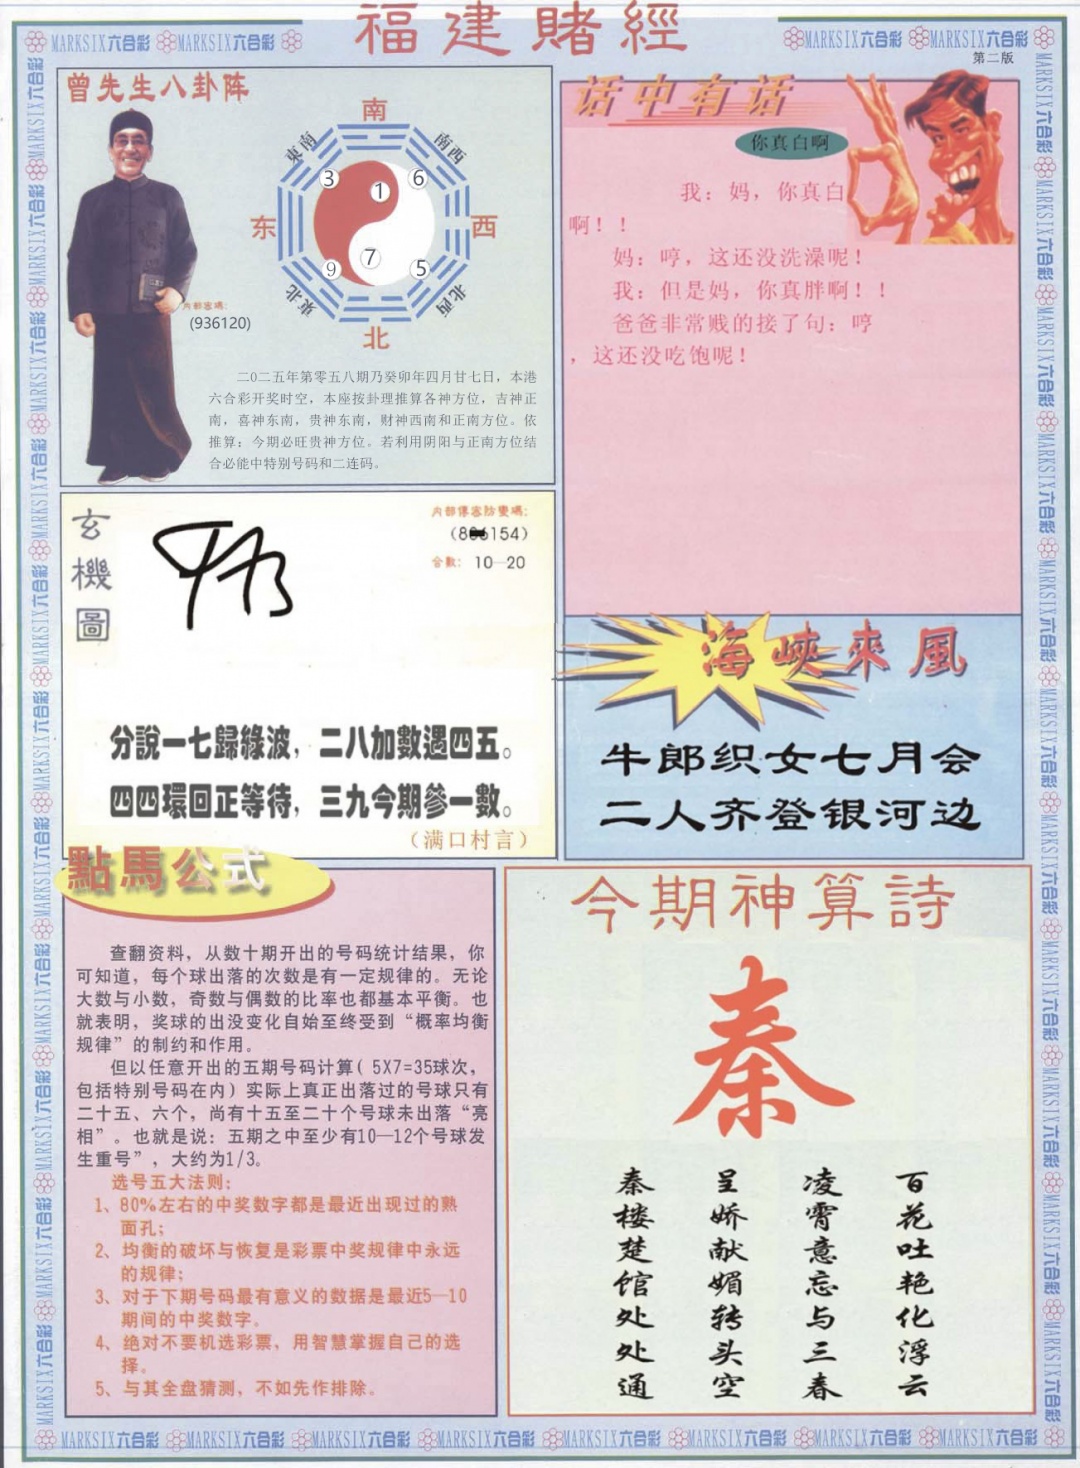 福建賭經
MARKSIX六合彩 MARKSIX六合彩
MARKSIX六合彩 MARKSIX六合彩
第二版
曾先生八卦阵
南
東南
南西
3
6
1
东
西
7
9
5
東北
北西
北
内部密碼:
(936120)
二0二五年第零五八期乃癸卯年四月廿七日，本港
六合彩开奖时空，本座按卦理推算各神方位，吉神正
南，喜神东南，贵神东南，财神西南和正南方位。依
推算：今期必旺贵神方位。若利用阴阳与正南方位结
合必能中特别号码和二连码。
话中有话
你真白啊
我：妈，你真白
啊！！
妈：哼，这还没洗澡呢！
我：但是妈，你真胖啊！！
爸爸非常贱的接了句：哼
，这还没吃饱呢！
玄機圖
内部傳密防變碼:
合數: 10—20
分說一七歸綠波，二八加數遇四五。
四四環回正等待，三九今期參一數。
（满口村言）
海峽來風
牛郎织女七月会
二人齐登银河边
點馬公式
查翻资料，从数十期开出的号码统计结果，你
可知道，每个球出落的次数是有一定规律的。无论
大数与小数，奇数与偶数的比率也都基本平衡。也
就表明，奖球的出没变化自始至终受到“概率均衡
规律”的制约和作用。
但以任意开出的五期号码计算( 5X7=35球次，
包括特别号码在内）实际上真正出落过的号球只有
二十五、六个，尚有十五至二十个号球未出落“亮
相”。也就是说：五期之中至少有10—12个号球发
生重号”，大约为1/3。
选号五大法则:
1、80%左右的中奖数字都是最近出现过的熟
面孔;
2、均衡的破坏与恢复是彩票中奖规律中永远
的规律;
3、对于下期号码最有意义的数据是最近5—10
期间的中奖数字。
4、绝对不要机选彩票，用智慧掌握自己的选
择。
5、与其全盘猜测，不如先作排除。
今期神算詩
秦
百花吐艳化浮云
凌霄意忘与三春
呈娇献媚转头空
秦楼楚馆处处通
MARKSIX六合彩 MARKSIX六合彩 MARKSIX六合彩 MARKSIX六合彩 MARKSIX六合彩 MARKSIX六合彩 MARKSIX六合彩 MARKSIX六合彩